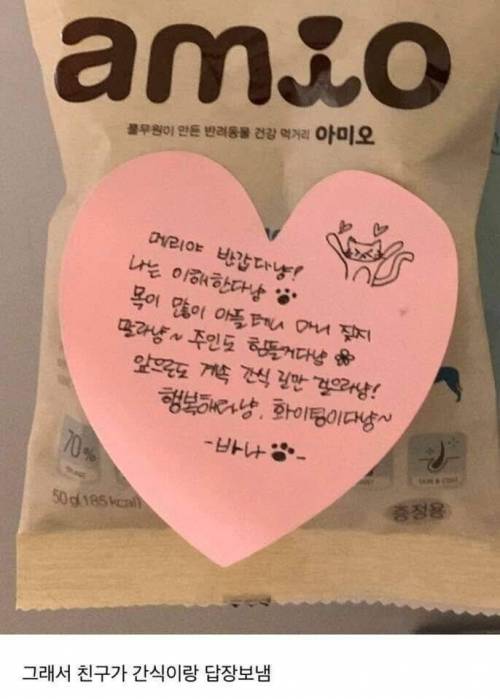 amio
풀무원이 만든 반려동물 건강 먹거리 아미오
메리야 반갑다냥!
나는 이해한다냥
목이 많이 아플테니 마니 짖지
말라냥~ 주인도 힘들거다냥
앞으론도 계속 간식 길만 걸으라냥!
행복해다냥. 화이팅이다냥~
-바나-
70%
50g(185kcal)
SKIN & COAT
증정용
그래서 친구가 간식이랑 답장보냄